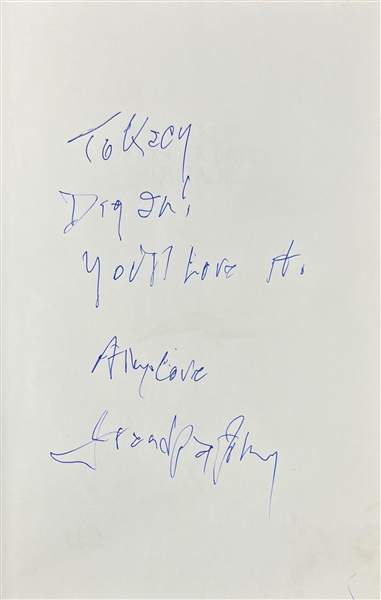 To Kacy
Dig In!
You'll Love It.
All my Love
Grandpa